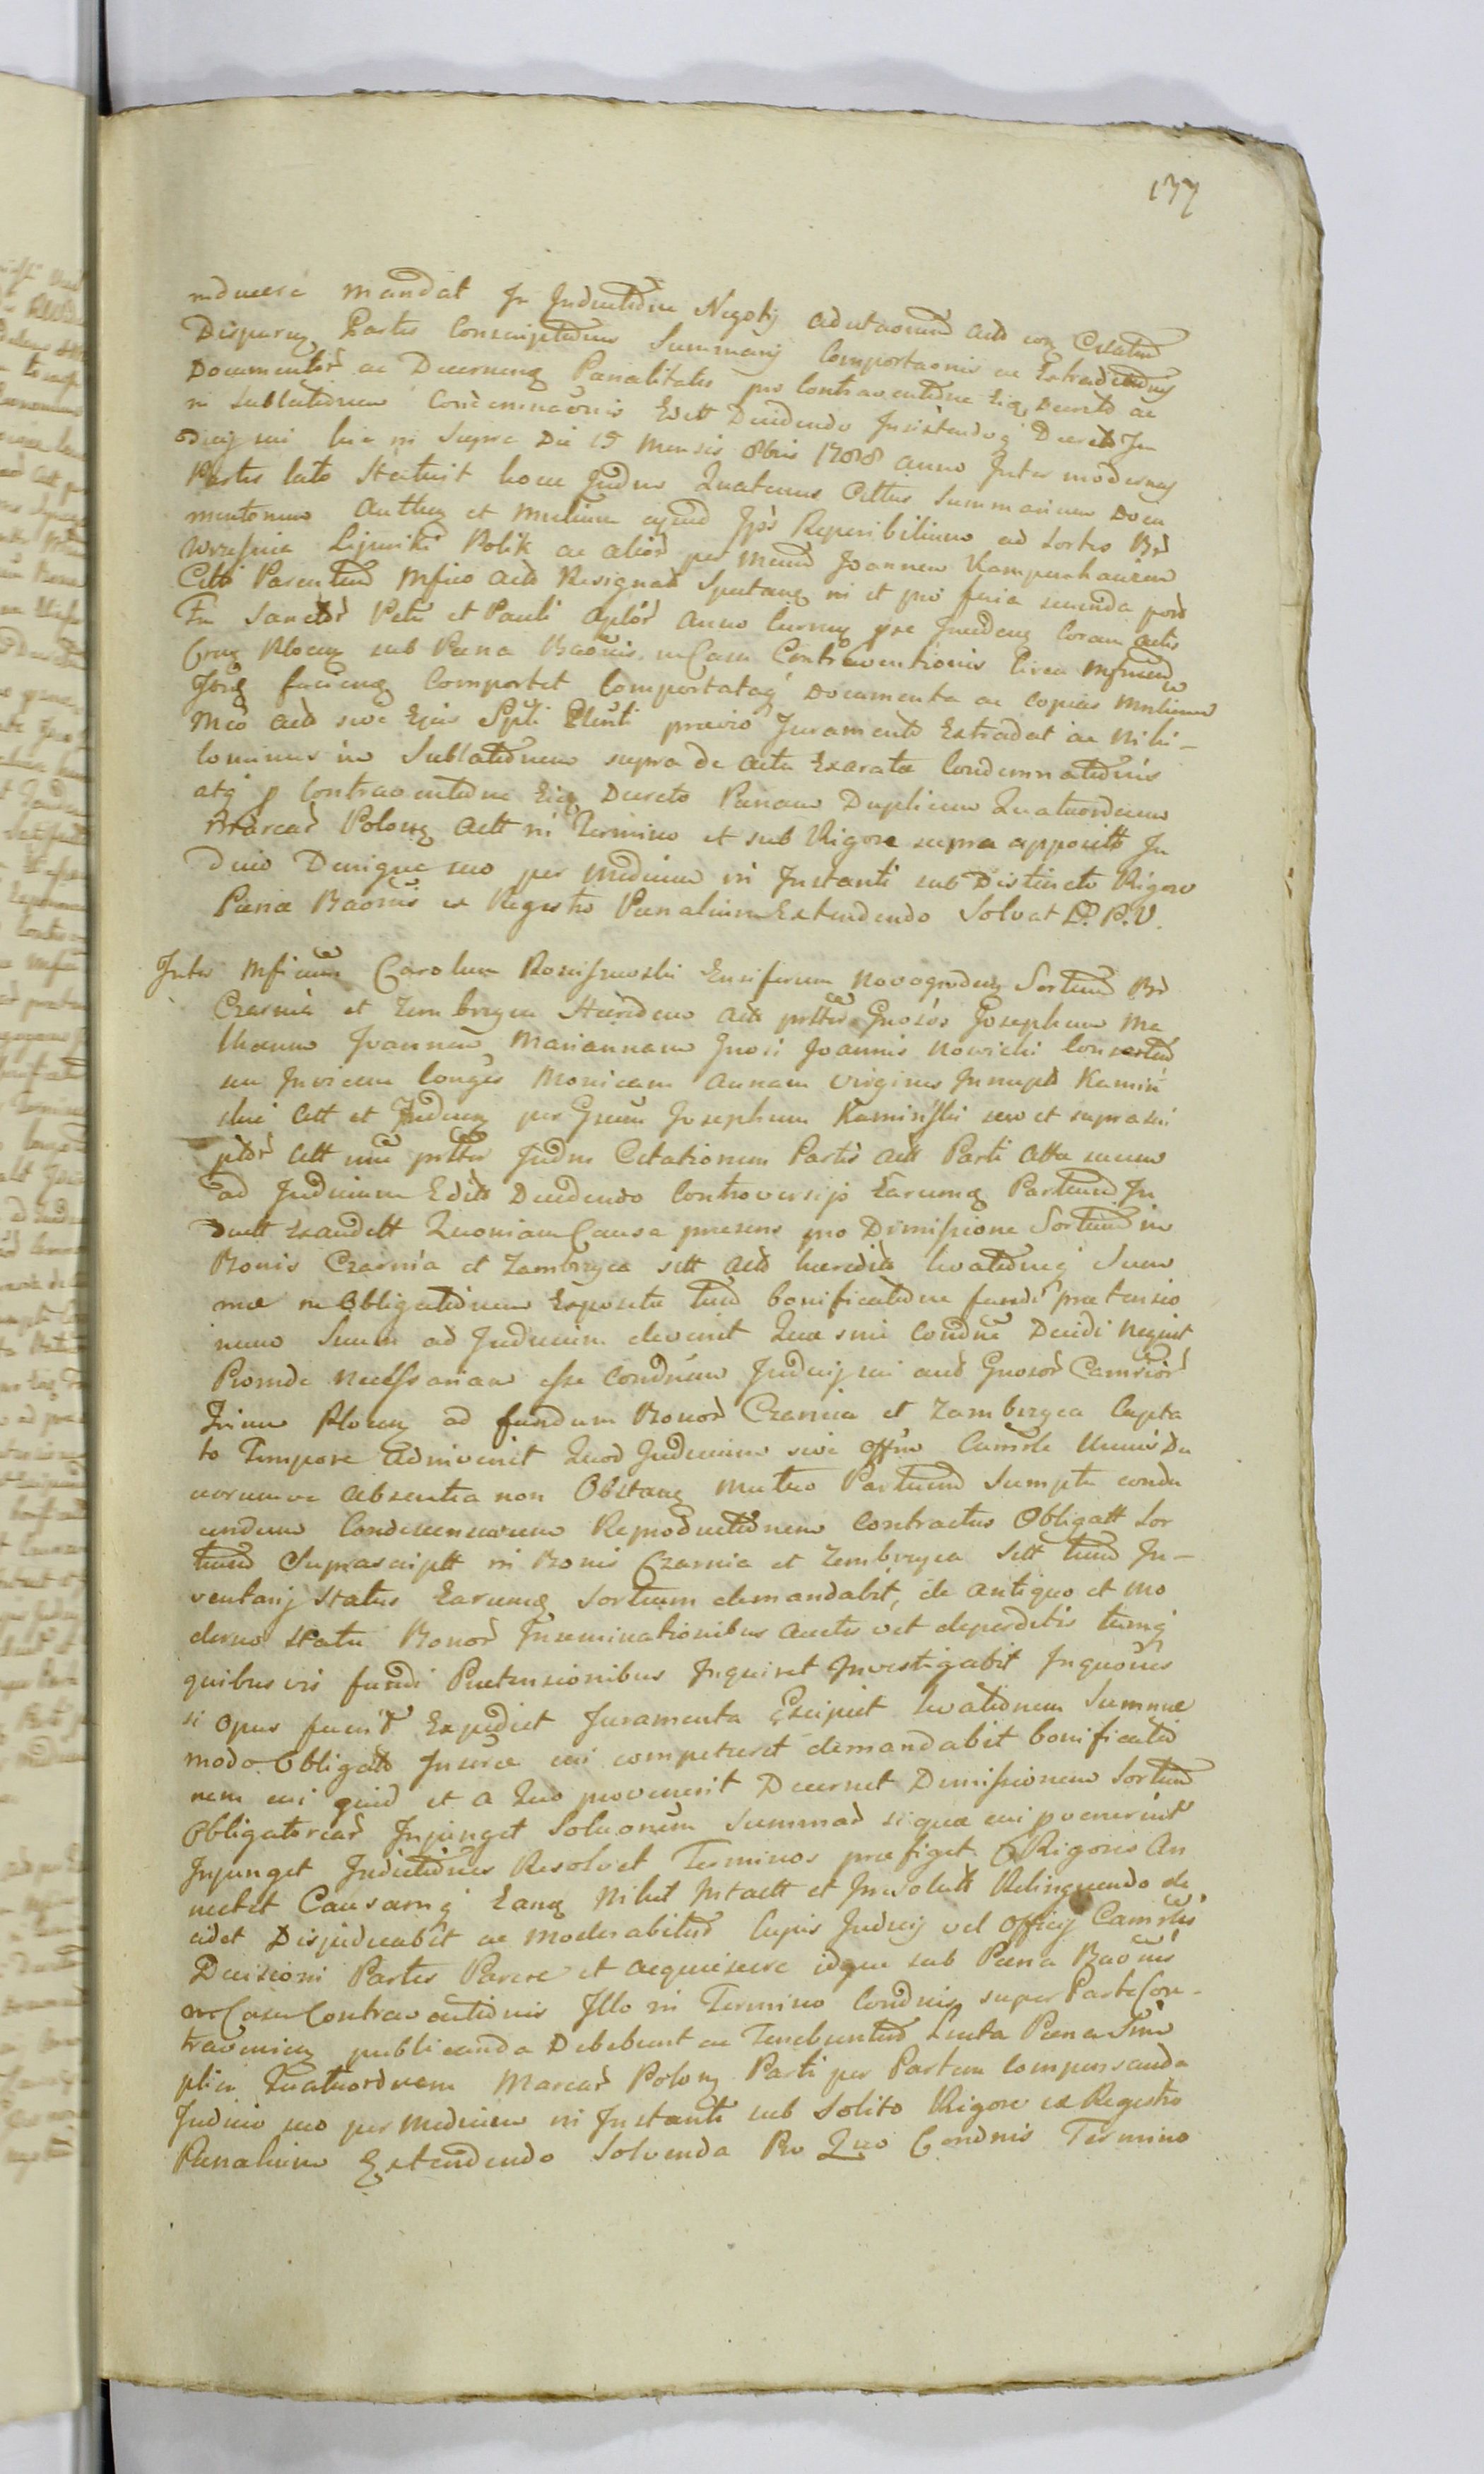 137
mducere mandat In Inductidne Negotij adutaorum actò coram Citatum
Disparen Partes Conscriptidnem Summarij Comportaonis ac Extraditidnis
Documentor ac Decernen Panalitates pro Contraventidne Decreto ac
in Sublatidnem Condemnaonis Edit Decidendo Insistendoq Decreto Ju
dicij sui hic in Supra Die 15 Mensis 8bris 1788 anno Inter modernas
Partes lato Statuit hocce Judm Quatenus Cittus Summarium Docu
mentorum Authen et Mulium Reperibilium ad Sortes Br
Wrzesnia Lipniki Bolik ac alior per Joannem Kampenhauzen
Citti Parentum Mfico actò Resignat Spectan ni et pro feria secunda post
Fm Sanctor Petri et Pauli Aplor Anno Curren Coram actis
Gren Plocen sub Pæna Baonis in Casu Contraventionis Circa
facien Comportet Comportataq Documenta ac Copias
Mco actò sive Ejus Spli Plenti prævio Juramento Extradat ac Nihi-
lominus in Sublatidnem supra de actu Exaratæ Condemnatidnis
atq p Contraventidne Decreto Pænam Duplicem Quatuordecem
Marcar Polon actt in Termino et sub Rigore supra apposito Ju
dicio Denique suo per medium in Instanti sub Distincto Rigore
Pænæ Baonis ex Registro Pænalium Extendendo Solvat D. P. V.
Inter Mficum Carolum Roscissewski Ensiferum Novogroden Sortium Br
Czarnia et Zembrzyca Hæredem actò Gnosos Josephum Ma
theum Joannem Mariannam Gnosi Joannis Nowicki Consortem
seu Invicem Conges Monicam Annam Virgines Innupt Kamin
skie citt et Inducen per Gsum Josephum Kaminski seu et suprascri
ptos citt Judm Citationem Partis actt Parti citta suum
ad Judicium Edito Decidendo Controversijs Earumq Partium In
ductt Exauditt Quoniam Causa præsens pro Dimissione Sortium in
Bonis Czarnia et Zambrzyca sitt actò hæredito levatidneq Sum
mæ in Obligatidnem Exposita tum bonificatidne fundi prætensio
num Suum ad Judicium devenit Quæ sine Condne Decidi nequit
Proinde necessariam esse Condnem Judicij sui Gnosor Camrior
Trium Plocen ad fundum Bonor Czarnia et Zambrzyca Capta
to Tempore Adinvenit Quod Judicium sive Offm Camrle Unius Du
orumve absentia non Obstan mutuo Partium Sumptu condu
cendum Condescensurum Reproductidnem Contractus Obligatt Sor
tium Suprascriptt in Bonis Czarnia et Zembrzyca Sitt tum In-
ventarij Status Earumq Sortium demandabit, de antiquo et mo
derno Statu Bonor Inseminationibus auctis vel deperditis tumq
quibusvis fundi Prætensionibus Inquiret Investigabit Inquones
si Opus fuerit Expediet Juramenta Excipiet levatidnem Summæ
modo Obligato Insuræ cui competeret demandabit bonificatid
nem cui quid et a Quo provenerit Decernet Dimissionem Sortium
Obligatoriar Injunget Soluonem Summar siquæ cui pvenerint
Injunget Inductidnes Resolvet Terminos præfiget Rigores An
nectet Causamq Eanq Nihil Intactt et Irresolutt Relinquendo de
cidet Disjudicabit ac Moderabitur Cujus Judicij vel Officij Camrlis
Decisioni Partes Parere et acquiescere idque sub Pæna Baonis
in Casu Contraventidnis Illo in Termino Condnis super Parte Con-
travenien publicanda Debebunt ac Tenebuntur Lucta Pæna Sim
plici Quatuordecem Marcar Polon Parti per Partem compensanda
Judicio suo per Medium in Instanti sub Solito Rigore ex Registro
Pænalium Extendendo Solvenda Pro Quo Condnis Termino